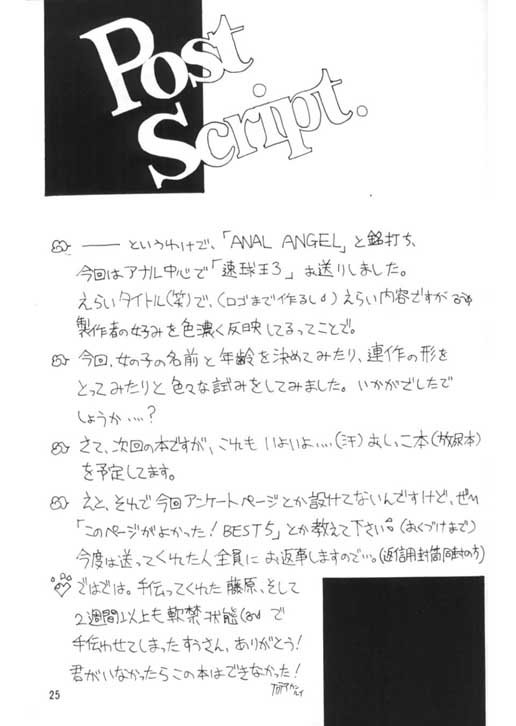 Post
Script.
―― というわけで、「ANAL ANGEL」と銘打ち、
今回はアナル中心で「速球王3」お送りしました。
えらいタイトル(笑)で、(ロゴまで作るし)えらい内容ですが
製作者の好みを色濃く反映してるってことで。
今回、女の子の名前と年齢を決めてみたり、連作の形を
とってみたりと色々な試みをしてみました。いかがでしたで
しょうか....?
さて、次回の本ですが、これも いよいよ....(汗)おしっこ本(放尿本)
を予定してます。
えと、それで今回アンケートページとか設けてないんですけど、ぜひ
「このページがよかった!BEST5」とか教えて下さい。(おくづけまで)
今度は送ってくれた人全員にお返事しますので…。(返信用封筒同封の方)
ではでは。手伝ってくれた 藤原、そして
2週間以上も軟禁状態 で
手伝わせてしまったすうさん、ありがとう!
君がいなかったらこの本はできなかった!
25